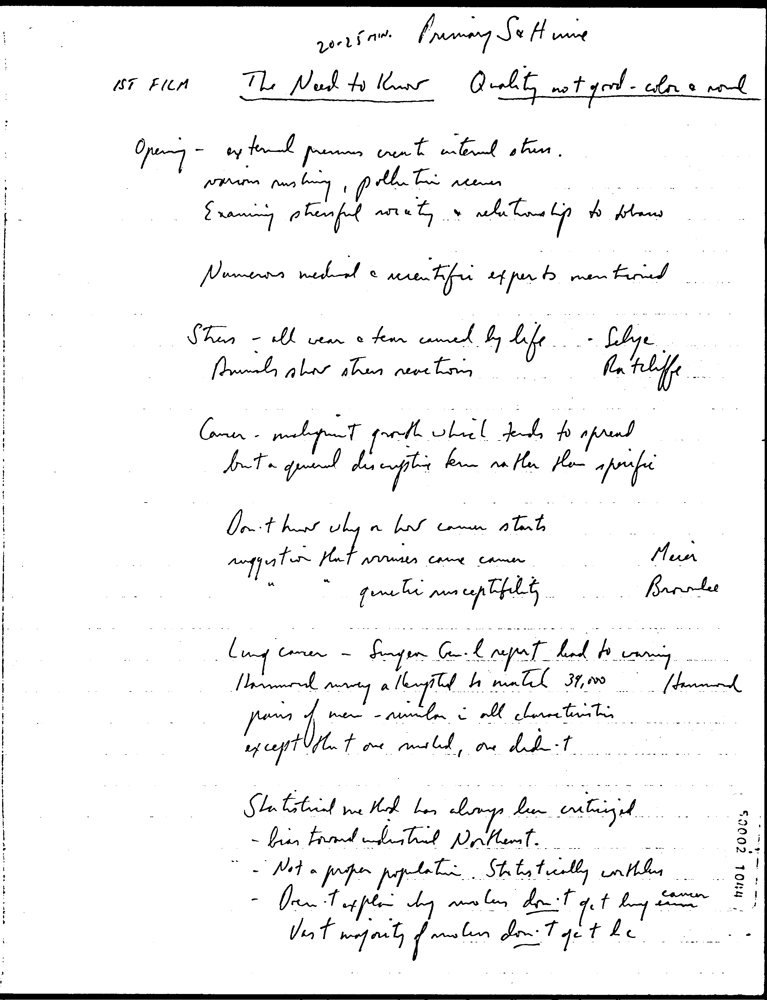 20-25 MIN. Primary S&H
1ST FILM The Need to Know Quality not good - color & sound
Opening - external pressures create internal stress.
various rushing, pollution scenes
Examining stressful society & relationship to tobacco
Numerous medical & scientific experts mentioned
Stress - all wear & tear caused by life - Selye
Animals show stress reactions Ratcliffe
Cancer - malignant growth which tends to spread
but a general descriptive term rather than specific
Don't know why or how cancer starts
suggestion that viruses cause cancer Meier
" " genetic susceptibility Brownlee
Lung cancer - Surgeon Gen'l report lead to warning
Hammond survey attempted to match 39,000 Hammond
pairs of men - similar in all characteristics
except that one smoked, one didn't
Statistical method has always been criticized
- bias toward industrial Northeast.
- Not a proper population. Statistically worthless
- Doesn't explain why smokers don't get lung cancer
Vast majority of smokers don't get lc
50002 1044